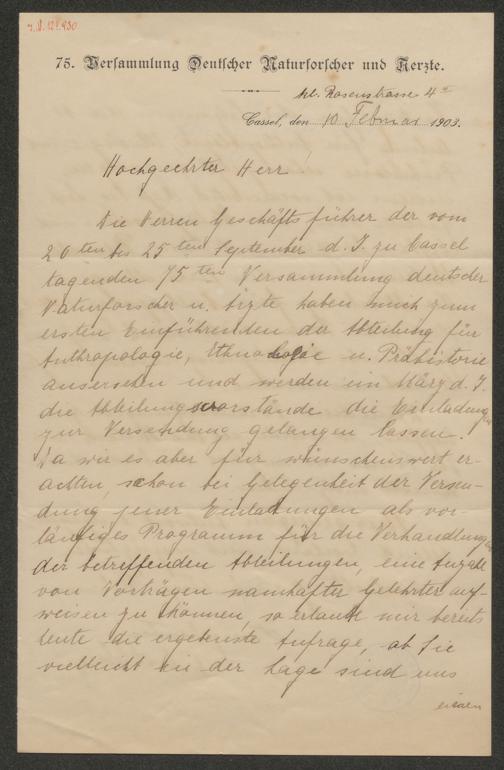 75. Versammlung Deutscher Naturforscher und Aerzte.
Rosenstrasse 4
Cassel, den 10 Februar 1903.
Hochgeehrter Herr!
Die Herren Geschäftsführer der vom
20ten bis 25ten September d. J. zu Cassel
tagenden 75ten Versammlung deutscher
Naturforscher u. Ärzte haben mich zum
ersten Einführenden der Abteilung für
Anthropologie, Ethnologie u. Prähistorie
ausersehen und werden im März d. J.
die Abteilungsvorstände die Einladungen
zur Versendung gelangen lassen.
Da wir es aber für wünschenswert er-
achten, schon bei Gelegenheit der Versen-
dung jener Einladungen als vor-
läufiges Programm für die Verhandlungen
der betreffenden Abteilungen, eine Anzahl
von Vorträgen namhafter Gelehrter auf-
weisen zu können, so erlaube mir bereits
heute die ergebenste Anfrage, ob Sie
vielleicht in der Lage sind uns
einen